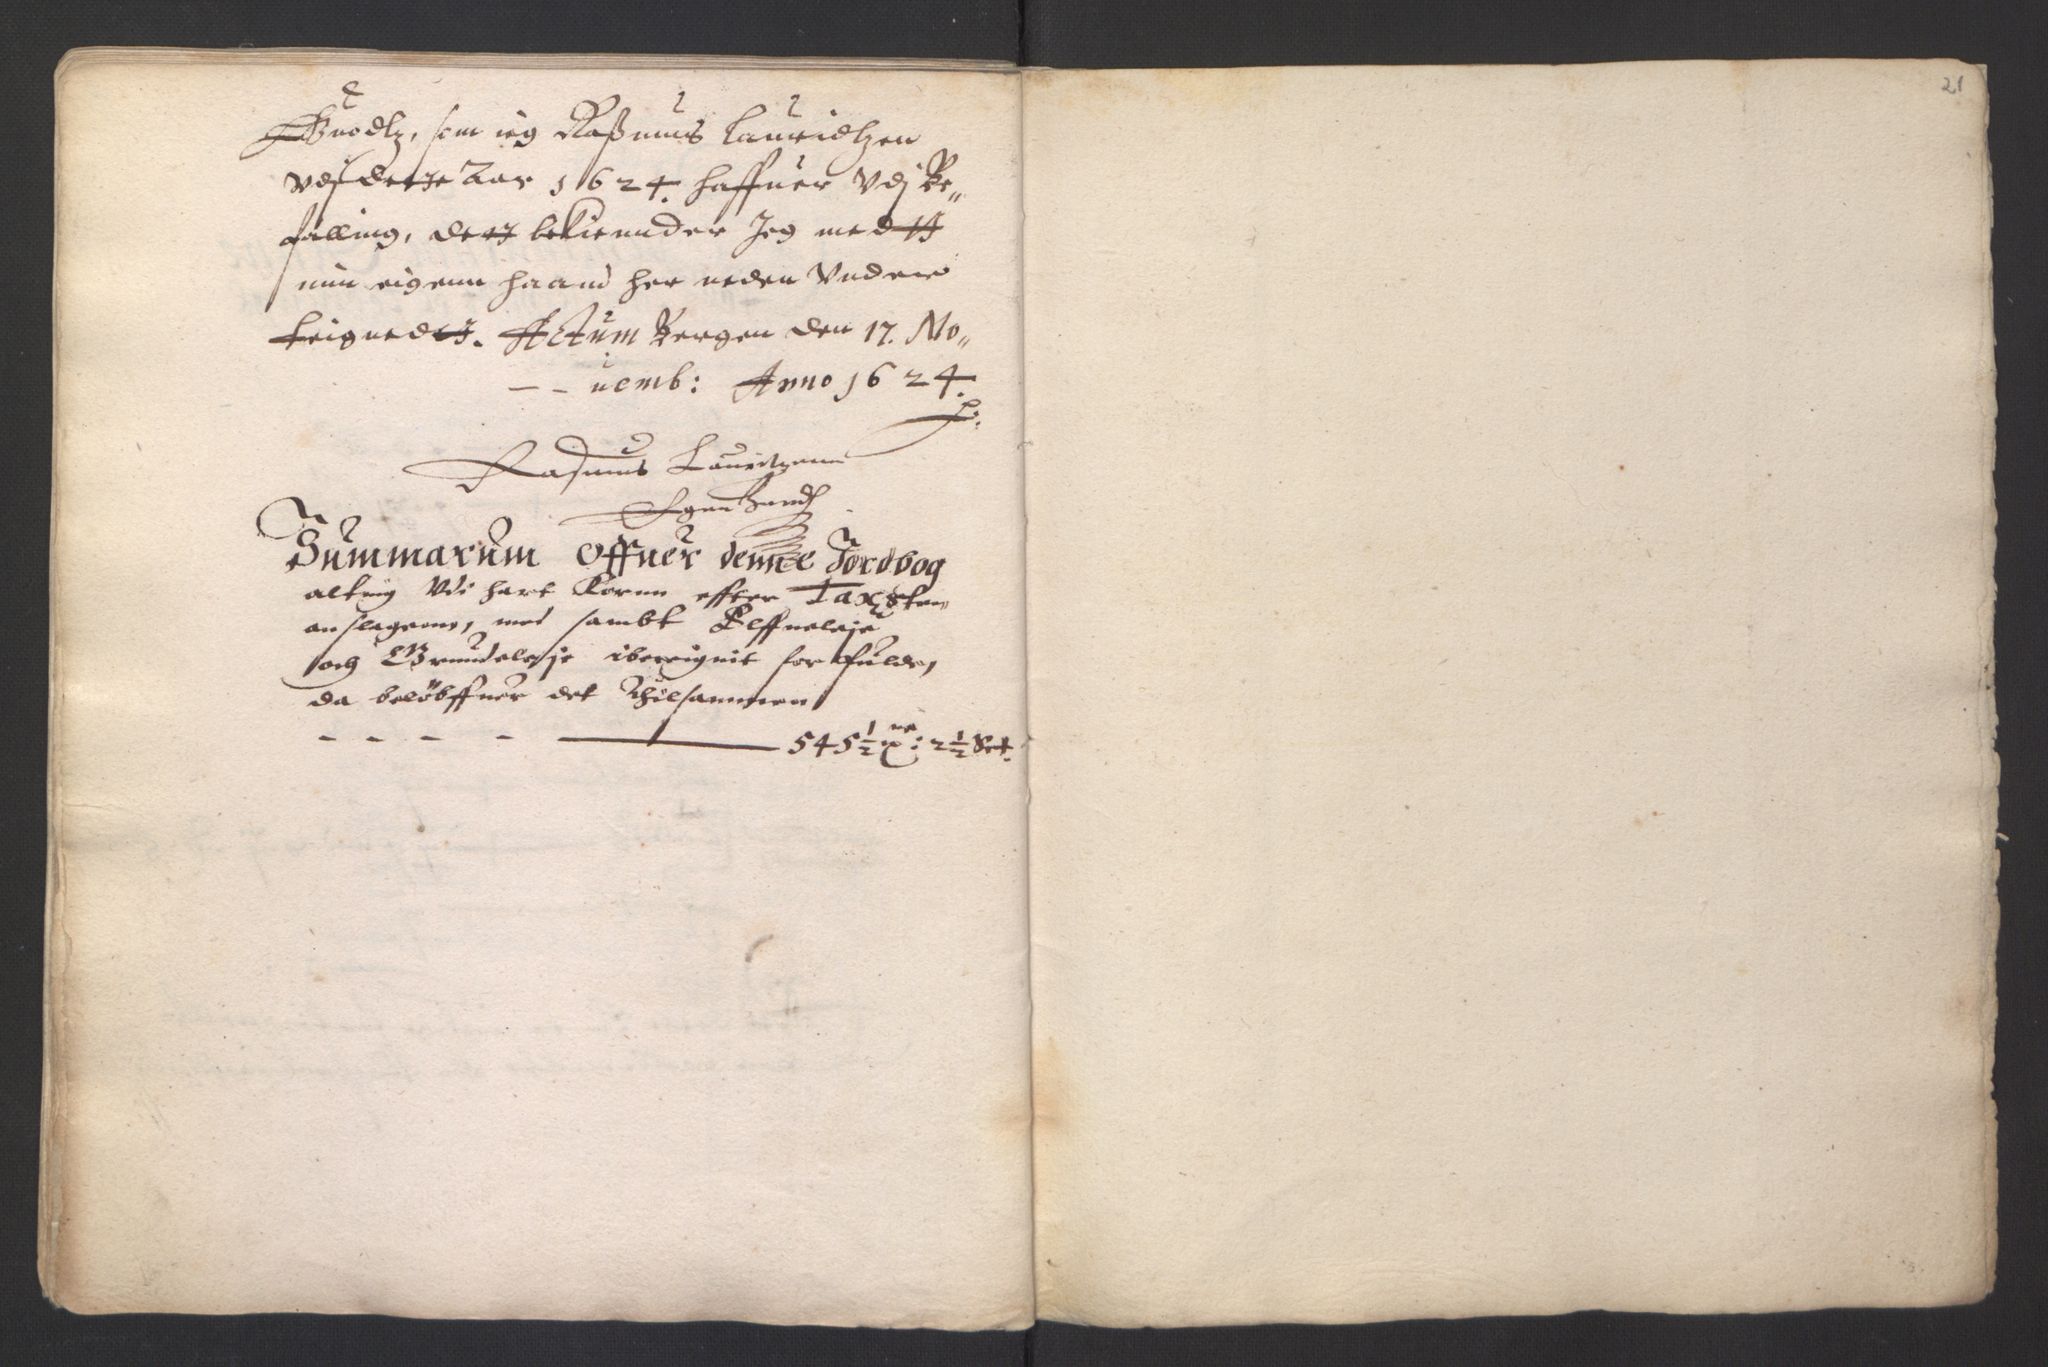 21
Guodtz, som ieg Rasmus Lauridtzen
Vdj dette Aar 1624. haffuer Vdj Be„
falling, dett bekiennder Jeg med
min eigenn haand her neden Vnder
teignedtt. Actum Bergen den 17. No„
uemb: Anno 1624.
Rasmus Lauritzenn
Egen handt
Summarum Offuer denne Jordbog
alting Vdi hart Kornn effter Taxsten
anslagenn, med sambt Elffueleje
och Grundeleje iberignit for fulde,
da beløbffuer det thilsammen
- - - - 545½ : 2½ Set.